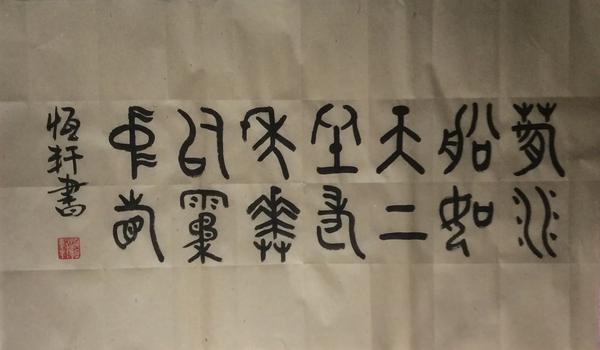 春水
船如
天上
坐老
年華
似霧
中看
恒軒書